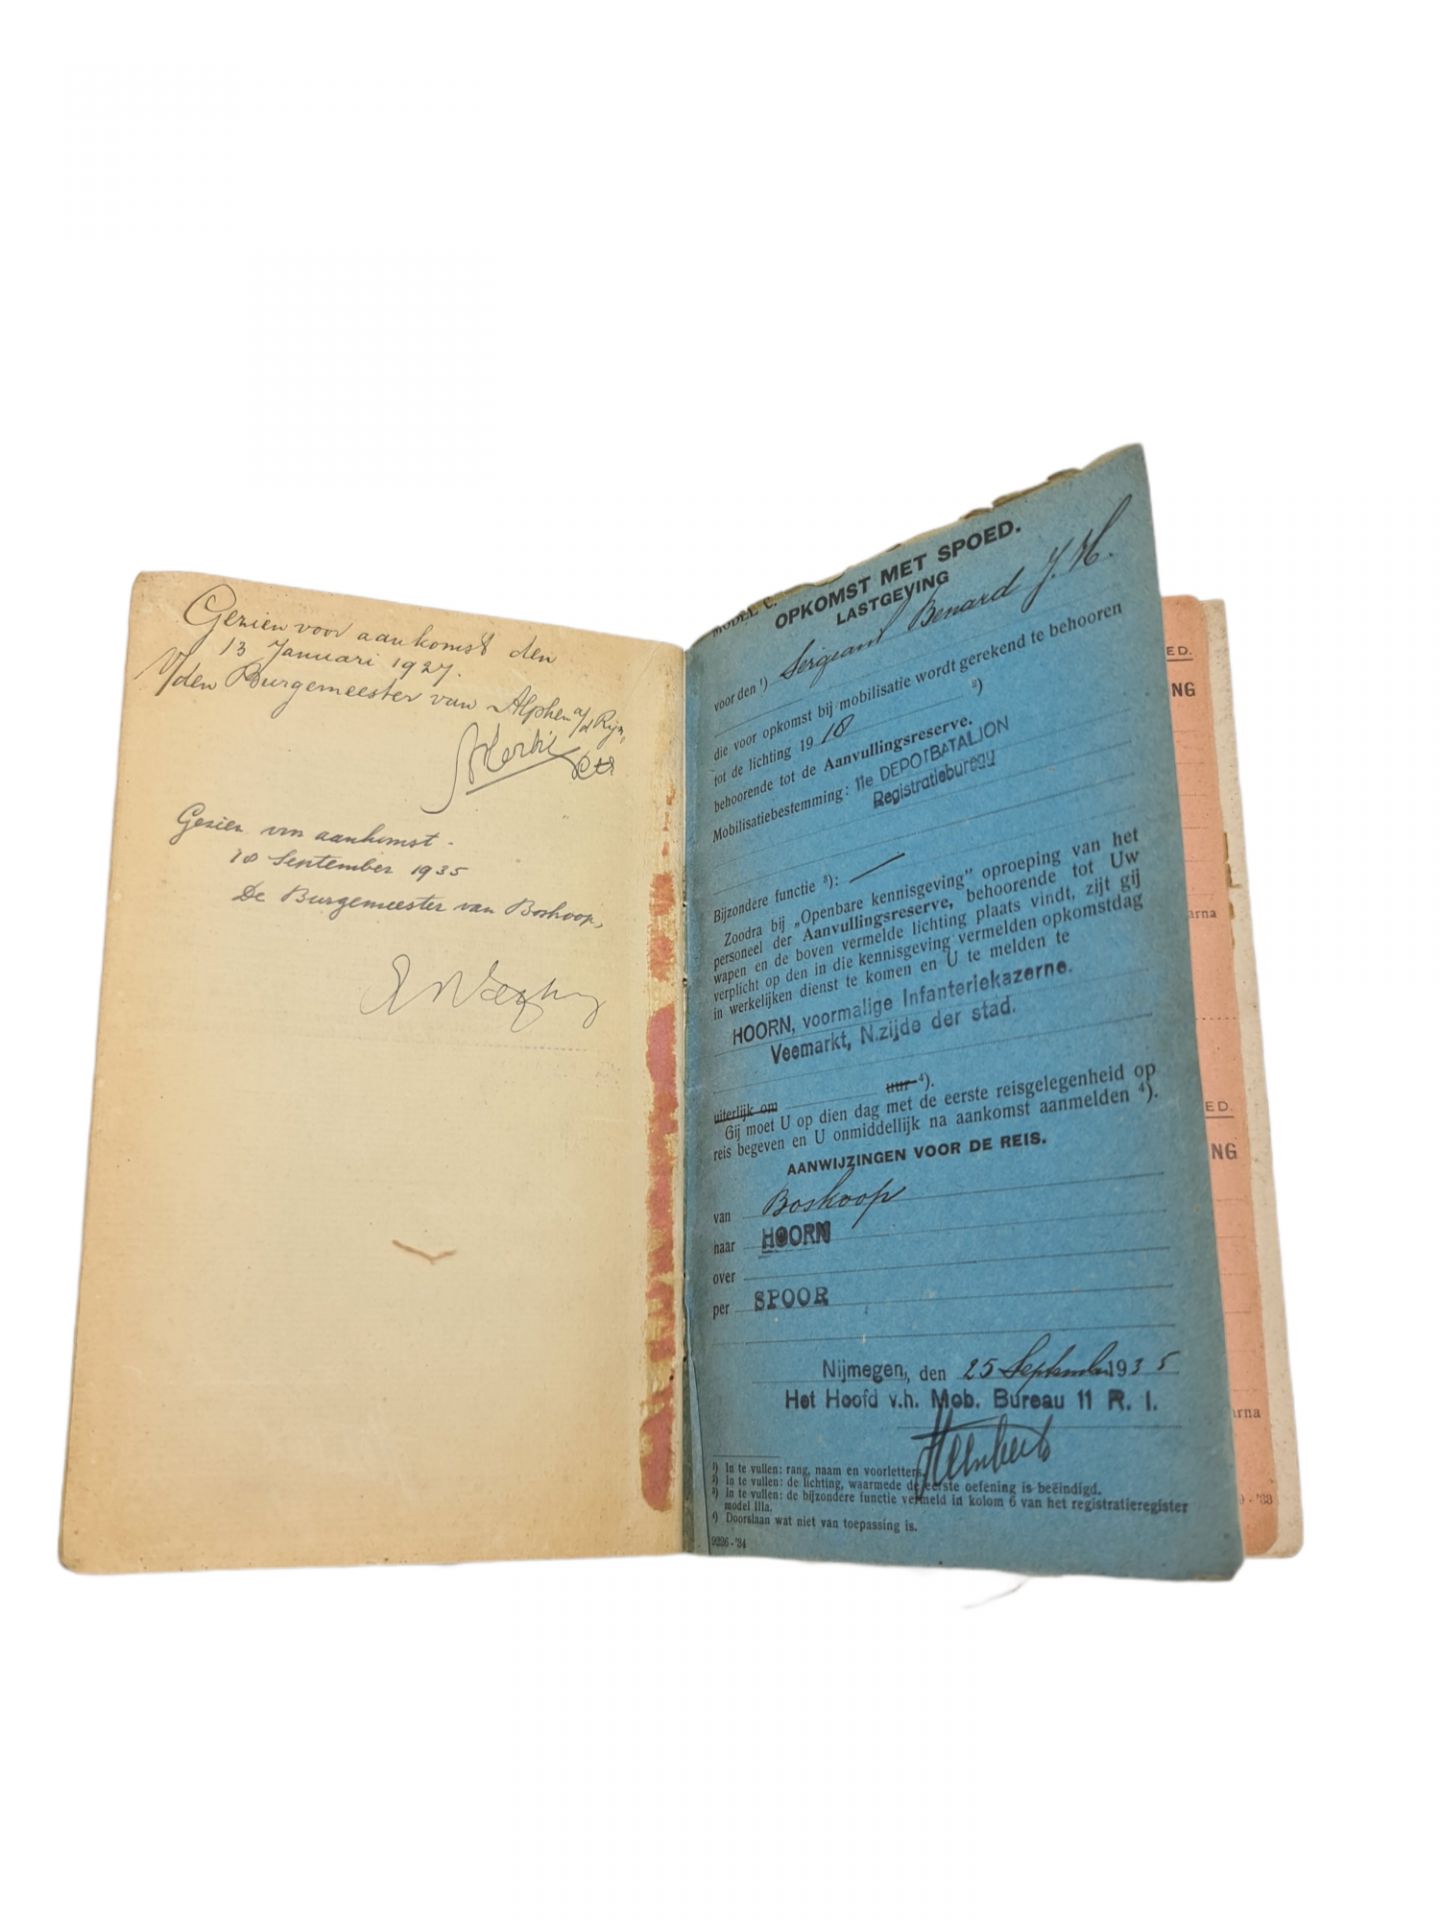 Gezien voor aankomst den
13 Januari 1927.
V/den Burgemeester van Alphen a/d Rijn,
Gezien von aankomst.
18 September 1935
De Burgemeester van Boskoop,
MODEL C.
OPKOMST MET SPOED.
LASTGEVING
voor den ¹) Sergeant Benard J. H.
die voor opkomst bij mobilisatie wordt gerekend te behooren
tot de lichting 1918 ²)
behoorende tot de Aanvullingsreserve.
Mobilisatiebestemming: 11e DEPOTBATALJON
Registratiebureau
Bijzondere functie ³): —
Zoodra bij „Openbare kennisgeving” oproeping van het
personeel der Aanvullingsreserve, behoorende tot Uw
wapen en de boven vermelde lichting plaats vindt, zijt gij
verplicht op den in die kennisgeving vermelden opkomstdag
in werkelijken dienst te komen en U te melden te
HOORN, voormalige Infanteriekazerne.
Veemarkt, N.zijde der stad.
uiterlijk om uur ⁴).
Gij moet U op dien dag met de eerste reisgelegenheid op
reis begeven en U onmiddellijk na aankomst aanmelden ⁴).
AANWIJZINGEN VOOR DE REIS.
van Boskoop
naar HOORN
over
per SPOOR
Nijmegen, den 25 September 1935
Het Hoofd v.h. Mob. Bureau 11 R. I.
¹) In te vullen: rang, naam en voorletters.
²) In te vullen: de lichting, waarmede de eerste oefening is beëindigd.
³) In te vullen: de bijzondere functie vermeld in kolom 6 van het registratieregister
model IIIa.
⁴) Doorslaan wat niet van toepassing is.
9226-'34
ED.
NG
arna
ED.
NG
arna
9-'33